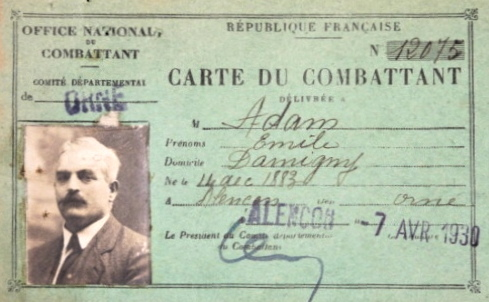 OFFICE NATIONAL
DU
COMBATTANT
COMITÉ DÉPARTEMENTAL
de ORNE
RÉPUBLIQUE FRANÇAISE
N 12075
CARTE DU COMBATTANT
DÉLIVRÉE A
M Adam
Prénoms Emile
Domicile Damigny
Né le 4 dec 1883
A Alencon Orne
ALENCON -7 AVR 1930
Le Président du Comité départemental
du Combattant